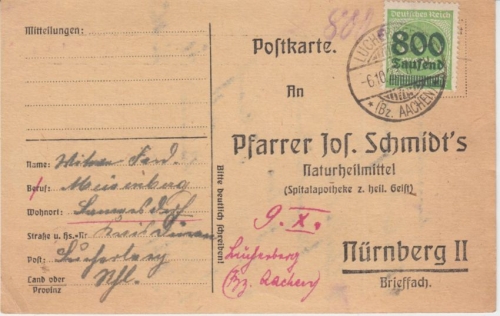 Mitteilungen:
Postkarte.
880
Deutsches Reich
800
Tausend
LUCH
-6.10.
* (Bz. AACHEN)
An
Pfarrer Jos. Schmidt's
Naturheilmittel
(Spitalapotheke z. heil. Geist)
Nürnberg II
Brieffach.
Bitte deutlich schreiben!
Name: Witwe Ferd.
Beruf: Meisenberg
Wohnort: Langerdorf
Straße u. Hs.-Nr.: Kreis Düren
Post: Lucherberg
Land oder Provinz Rhl.
9. X.
Lucherberg
(Bz. Aachen)